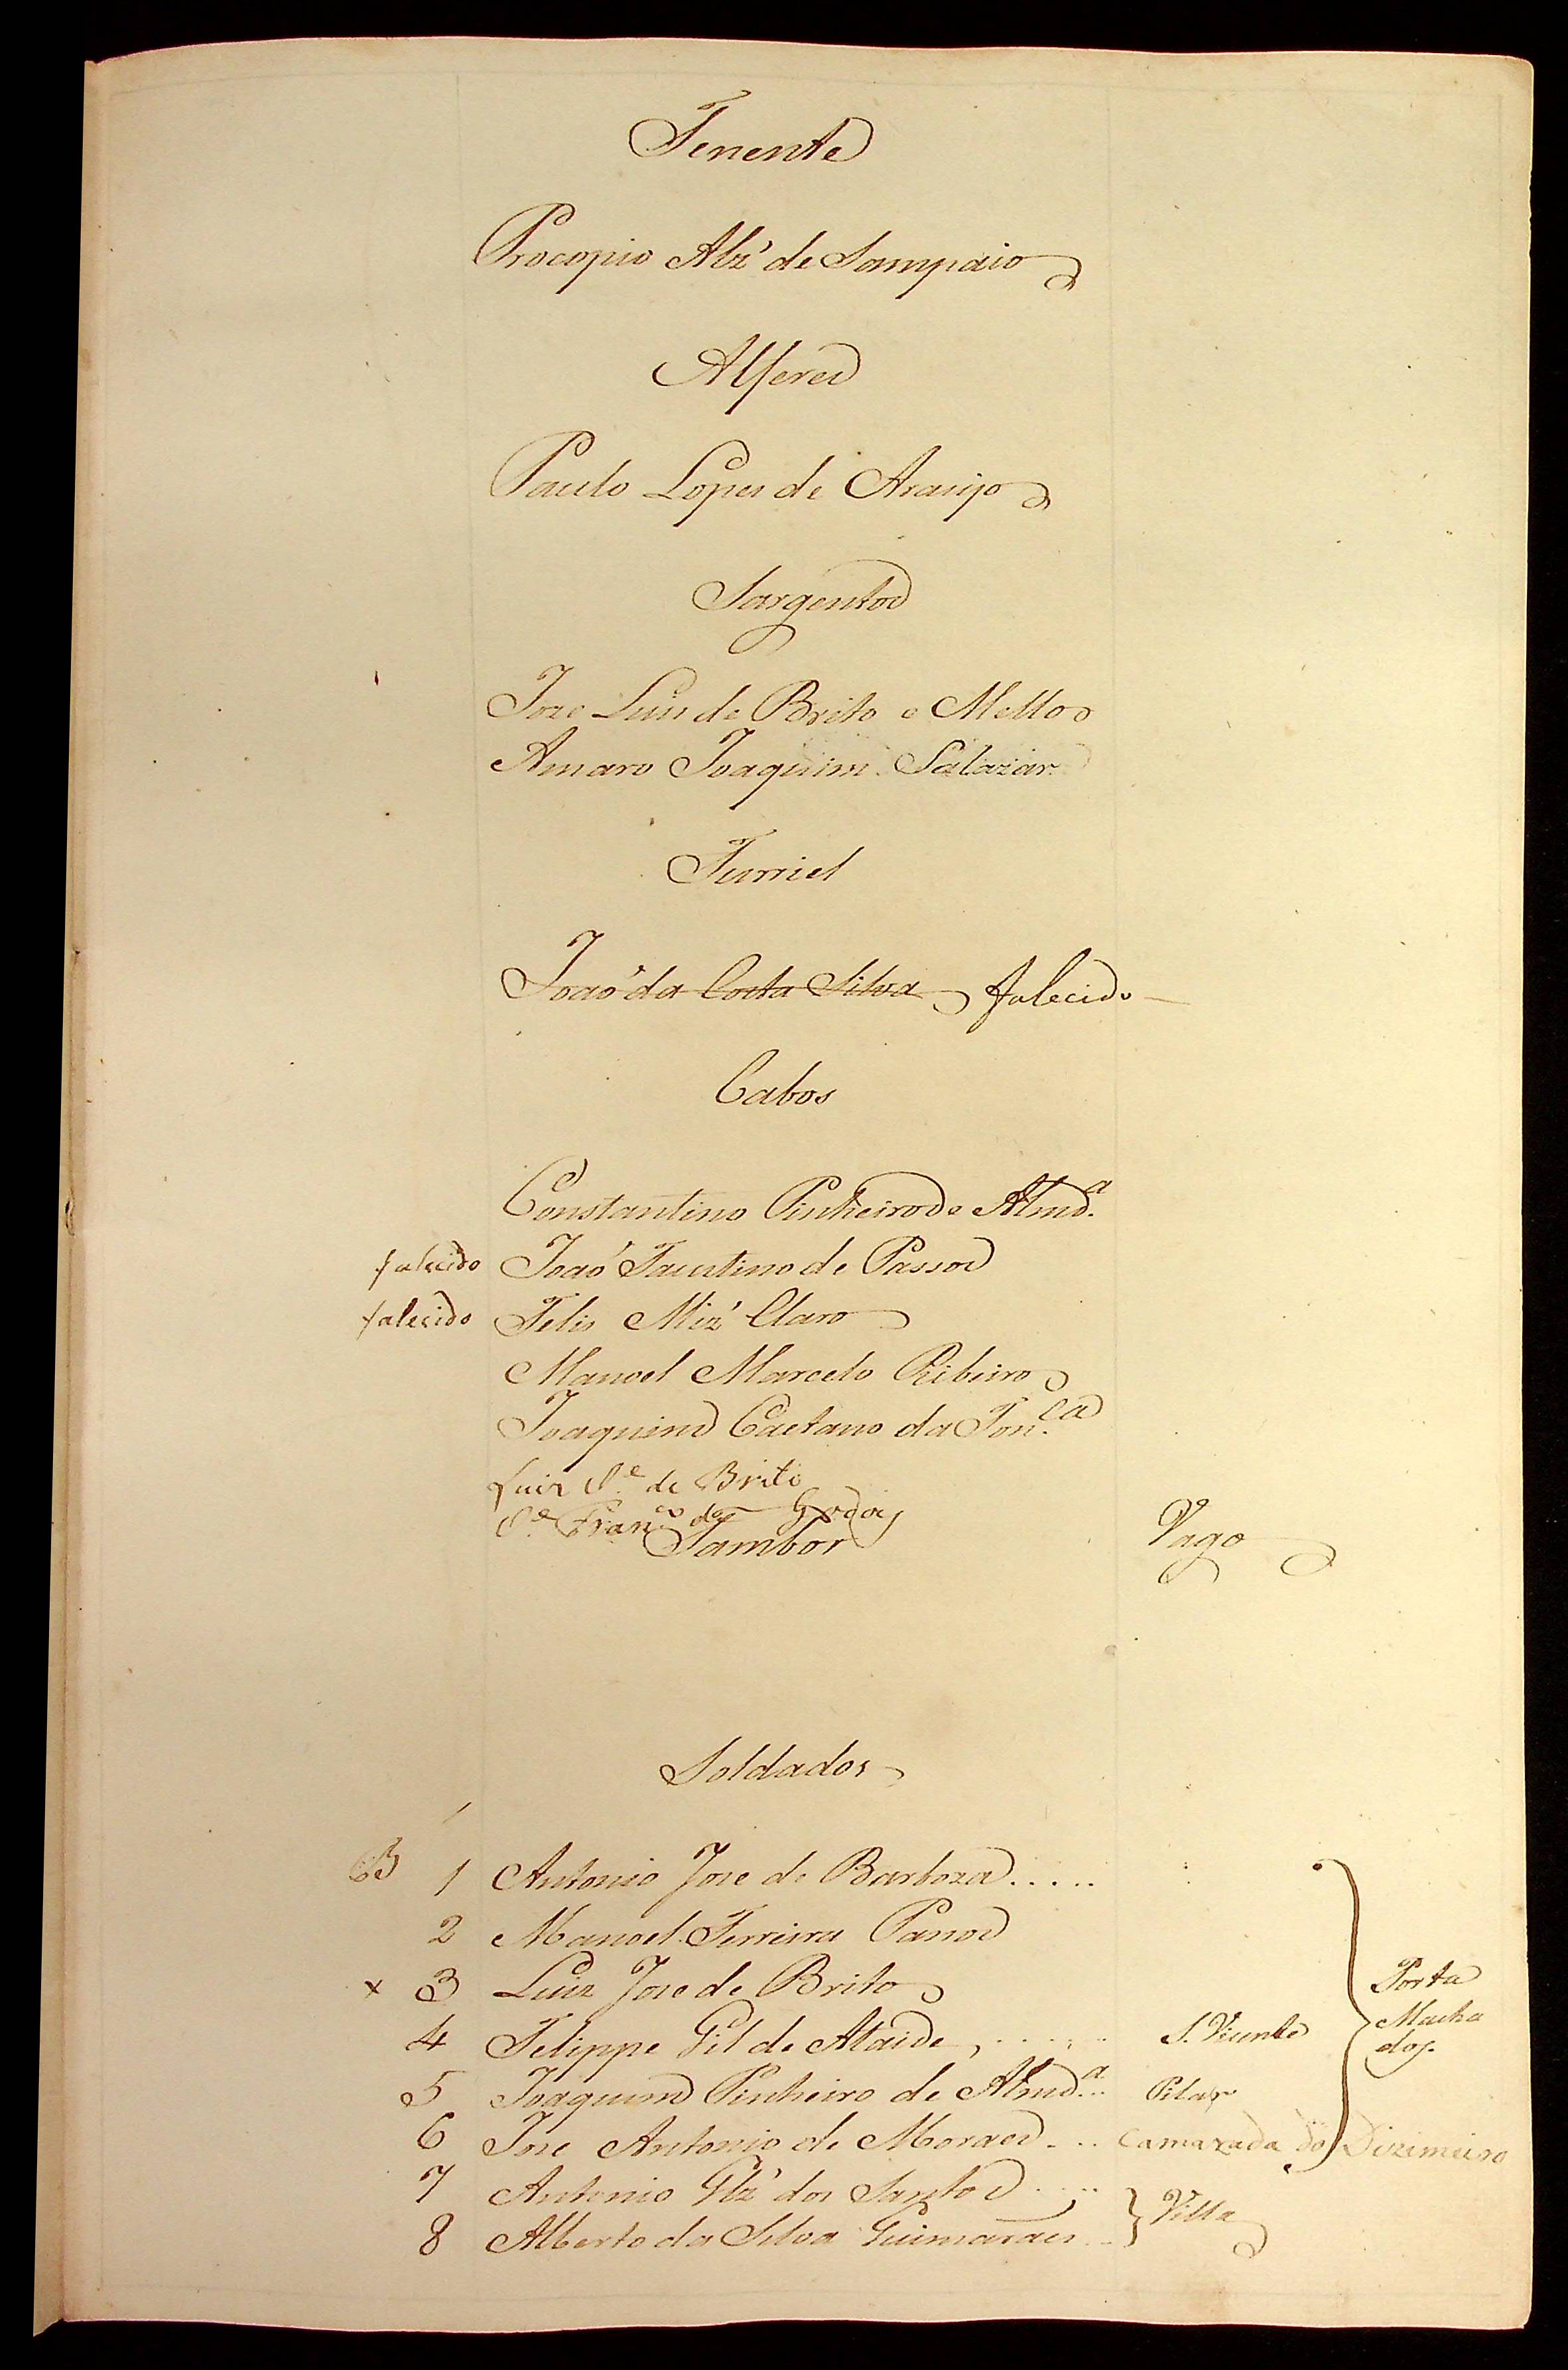 Tenente
Procopio Alz' de Sampaio
Alferes
Paulo Lopes de Araujo
Sargentos
Joze Luis de Brito e Mello
Amaro Joaquim Salazar
Furriel
Joaó da Costa Silva falecido
Cabos
Constantino Pinheiro de Almd.ª
falecido Joaó Faustino de Passos
falecido Felis Miz' Claro
Manoel Marcelo Ribeiro
Joaquim Caetano da Fon.ca
Luiz Je. de Brito
Je. Franco. de Godoy
Tambor Vago
Soldados
B 1 Antonio Joze de Barboza .....
2 Manoel Ferreira Passos
x 3 Luiz Joze de Brito
4 Felippe Gil de Ataide, ...... S. Vicente
Porta
Macha
dos.
5 Joaquim Pinheiro de Almd.ª... Pilar
6 Joze Antonio de Moraes ... Camarada do Dizimeiro
7 Antonio Glz' dos Santos ....
Villa
8 Alberto da Silva Guimaraes